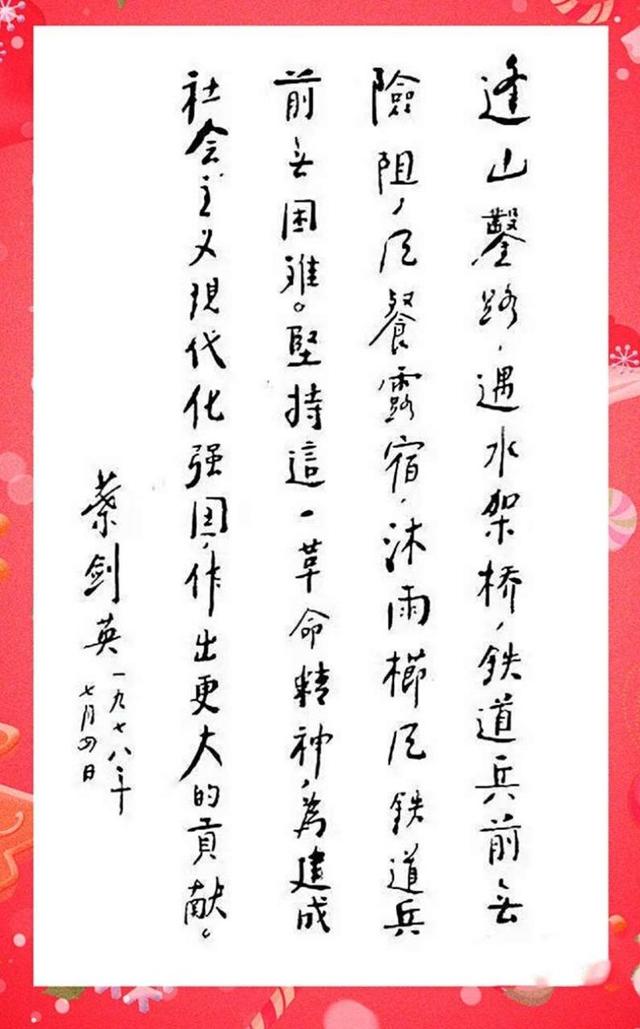 逢山鑿路,遇水架桥,鉄道兵前无
險阻,风餐露宿,沐雨櫛风鉄道兵
前无困难。堅持這一革命精神,為建成
社会主义現代化强国,作出更大的貢献。
葉剑英
一九七八年
七月四日